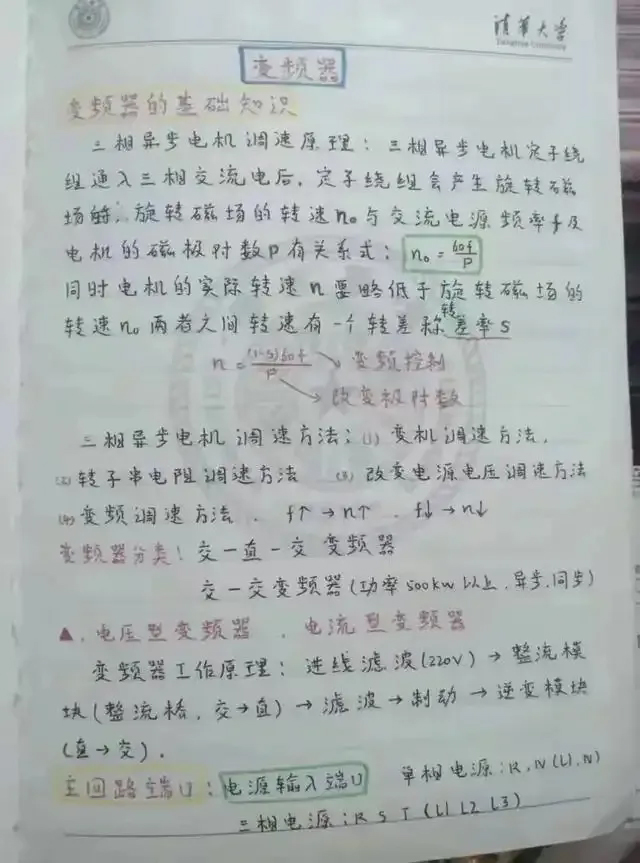 清华大学
Tsinghua University
变频器
变频器的基础知识
三相异步电机调速原理：三相异步电机定子绕
组通入三相交流电后，定子绕组会产生旋转磁
场，旋转磁场的转速n₀与交流电源频率f及
电机的磁极对数P有关系式：n₀=60f/P
同时电机的实际转速n要略低于旋转磁场的
转速n₀两者之间转速有一个转差称转差率S
n=(1-S)60f/P → 变频控制
→ 改变极对数
三相异步电机调速方法：(1) 变机调速方法，
(2) 转子串电阻调速方法 (3) 改变电源电压调速方法
(4) 变频调速方法． f↑→n↑．f↓→n↓
变频器分类！交一直一交 变频器
交一交变频器(功率500kw以上．异步．同步)
▲．电压型变频器 ．电流型变频器
变频器工作原理：进线滤波(220V)→整流模
块(整流桥，交→直)→滤波→制动→逆变模块
(直→交)．
主回路端口：电源输入端口 单相电源：R，N(L1，N)
三相电源：R S T (L1 L2 L3)